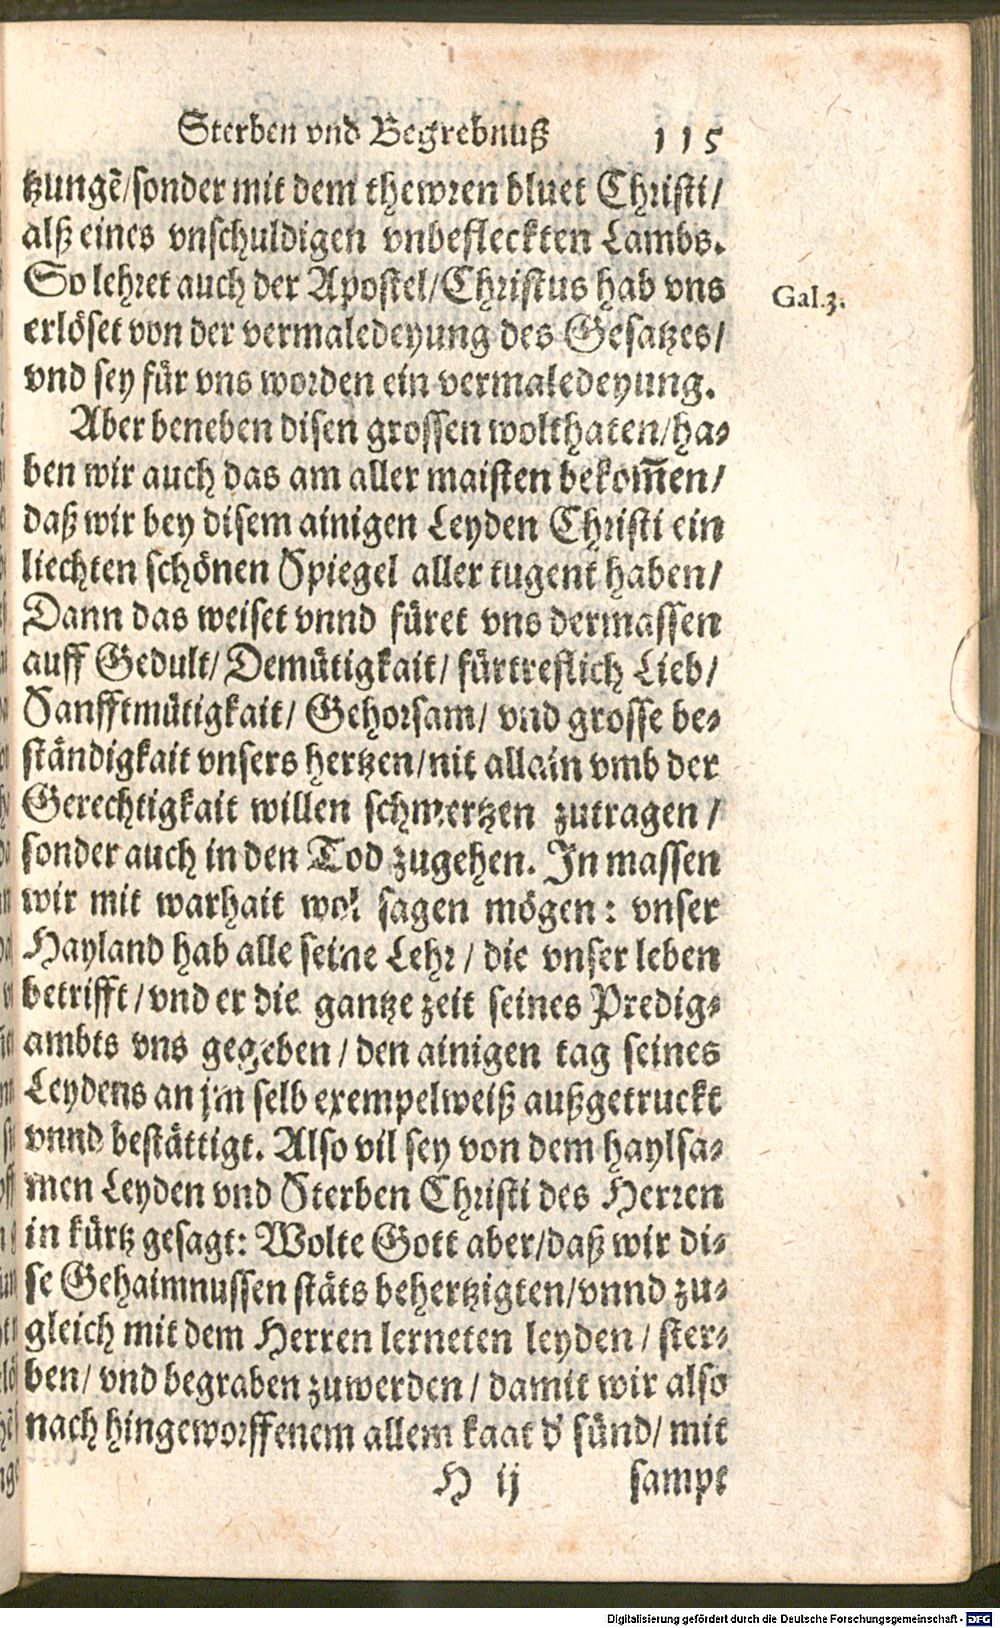 Sterben vnd Begrebnuß 115
tzungẽ/sonder mit dem thewren bluet Christi/
alß eines vnschuldigen vnbefleckten Lambs.
So lehret auch der Apostel/Christus hab vns
Gal.3.
erlöset von der vermaledeyung des Gesatzes/
vnd sey für vns worden ein vermaledeyung.
Aber beneben disen grossen wolthaten/ha-
ben wir auch das am aller maisten bekom̃en/
daß wir bey disem ainigen Leyden Christi ein
liechten schönen Spiegel aller tugent haben/
Dann das weiset vnnd füret vns dermassen
auff Gedult/Demütigkait/ fürtreflich Lieb/
Sanfftmütigkait/ Gehorsam/ vnd grosse be-
ständigkait vnsers hertzen/nit allain vmb der
Gerechtigkait willen schmertzen zutragen/
sonder auch in den Tod zugehen. In massen
wir mit warhait wol sagen mögen: vnser
Hayland hab alle seine Lehr/ die vnser leben
betrifft/vnd er die gantze zeit seines Predig-
ambts vns gegeben/den ainigen tag seines
Leydens an jm selb exempelweiß außgetruckt
vnnd bestättigt. Also vil sey von dem haylsa-
men Leyden vnd Sterben Christi des Herren
in kürtz gesagt: Wolte Gott aber/daß wir di-
se Gehaimnussen stäts behertzigten/vnnd zu-
gleich mit dem Herren lerneten leyden/ ster-
ben/ vnd begraben zuwerden/ damit wir also
nach hingeworffenem allem kaat d' sünd/ mit
H ij sampt
Digitalisierung gefördert durch die Deutsche Forschungsgemeinschaft - DFG